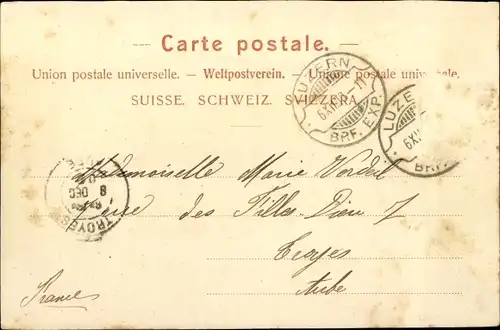 Carte postale.
Union postale universelle. — Weltpostverein. — Unione postale universale.
SUISSE. SCHWEIZ. SVIZZERA.
LUZERN
6XII98-11
BRF. EXP.
LUZE
6XII
BRF.
TROYES
8
DEC
Mademoiselle Marie Verdeil
Rue des Filles-Dieu 7
Troyes
Aube
France